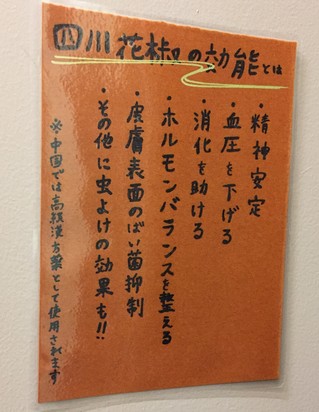 四川花椒の効能とは
・精神安定
・血圧を下げる
・消化を助ける
・ホルモンバランスを整える
・皮膚表面のばい菌抑制
・その他に虫よけの効果も!!
※中国では高級漢方薬として使用されます